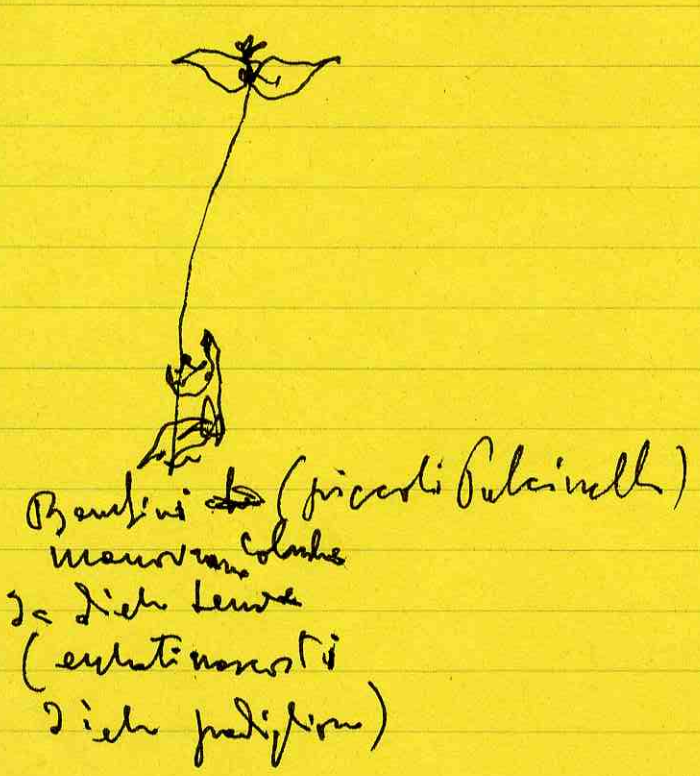 Bambini (piccoli Pulcinella)
manovrano colombe
da dietro tende
(nascosti
dietro padiglione)